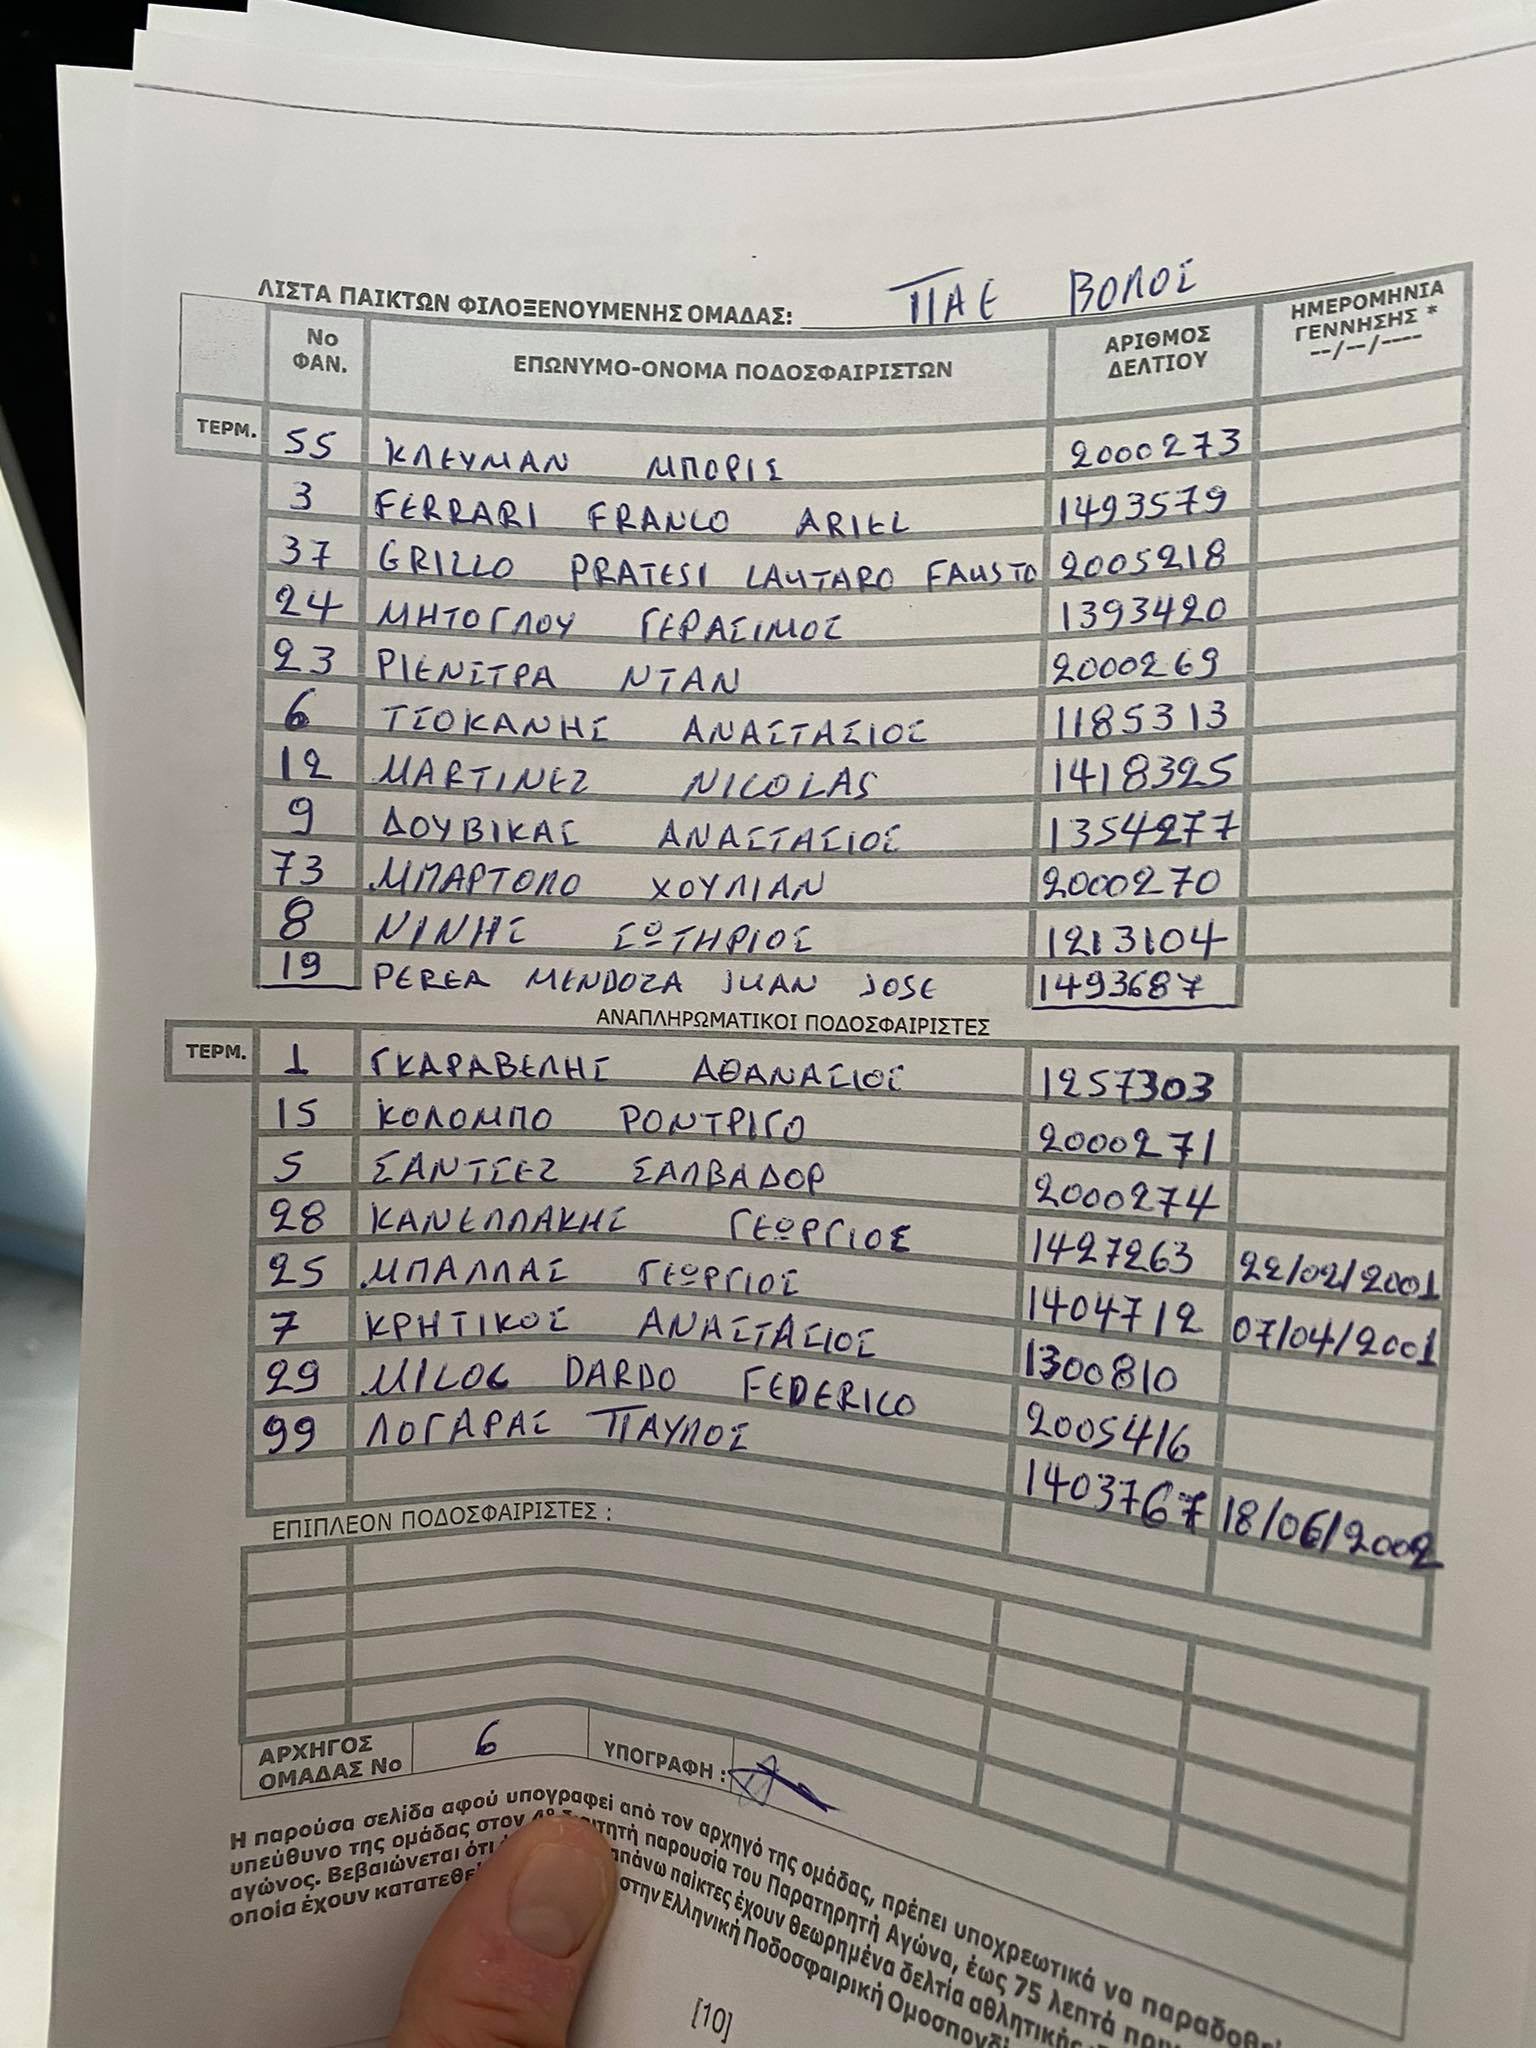 ΛΙΣΤΑ ΠΑΙΚΤΩΝ ΦΙΛΟΞΕΝΟΥΜΕΝΗΣ ΟΜΑΔΑΣ: ΠΑΕ ΒΟΛΟΣ
No ΦΑΝ. ΕΠΩΝΥΜΟ-ΟΝΟΜΑ ΠΟΔΟΣΦΑΙΡΙΣΤΩΝ ΑΡΙΘΜΟΣ ΔΕΛΤΙΟΥ ΗΜΕΡΟΜΗΝΙΑ ΓΕΝΝΗΣΗΣ * --/--/----
ΤΕΡΜ. 55 ΚΛΕΥΜΑΝ ΜΠΟΡΙΣ 2000273
3 FERRARI FRANCO ARIEL 1493579
37 GRILLO PRATESI LAUTARO FAUSTO 2005218
24 ΜΗΤΟΓΛΟΥ ΓΕΡΑΣΙΜΟΣ 1393420
23 ΡΙΕΝΣΤΡΑ ΝΤΑΝ 2000269
6 ΤΣΟΚΑΝΗΣ ΑΝΑΣΤΑΣΙΟΣ 1185313
12 MARTINEZ NICOLAS 1418325
9 ΔΟΥΒΙΚΑΣ ΑΝΑΣΤΑΣΙΟΣ 1354277
73 ΜΠΑΡΤΟΛΟ ΧΟΥΛΙΑΝ 2000270
8 ΝΙΝΗΣ ΣΩΤΗΡΙΟΣ 1213104
19 PEREA MENDOZA JUAN JOSE 1493687
ΑΝΑΠΛΗΡΩΜΑΤΙΚΟΙ ΠΟΔΟΣΦΑΙΡΙΣΤΕΣ
ΤΕΡΜ. 1 ΓΚΑΡΑΒΕΛΗΣ ΑΘΑΝΑΣΙΟΣ 1257303
15 ΚΟΛΟΜΠΟ ΡΟΝΤΡΙΓΟ 2000271
5 ΣΑΝΤΣΕΖ ΣΑΛΒΑΔΟΡ 2000274
28 ΚΑΝΕΛΛΑΚΗΣ ΓΕΩΡΓΙΟΣ 1427263 22/02/2001
25 ΜΠΑΛΛΑΣ ΓΕΩΡΓΙΟΣ 1404712 07/04/2001
7 ΚΡΗΤΙΚΟΣ ΑΝΑΣΤΑΣΙΟΣ 1300810
29 DARDO FEDERICO 2005416
99 ΛΟΓΑΡΑΣ ΠΑΥΛΟΣ 1403767 18/06/2002
ΕΠΙΠΛΕΟΝ ΠΟΔΟΣΦΑΙΡΙΣΤΕΣ :
ΑΡΧΗΓΟΣ ΟΜΑΔΑΣ Νο 6 ΥΠΟΓΡΑΦΗ :
Η παρούσα σελίδα αφού υπογραφεί από τον αρχηγό της ομάδας, πρέπει υποχρεωτικά να παραδοθεί
υπεύθυνο της ομάδας στον 4º παρουσία του Παρατηρητή Αγώνα, έως 75 λεπτά πριν
αγώνος. Βεβαιώνεται ότι παίκτες έχουν θεωρημένα δελτία αθλητικής
οποία έχουν κατατεθεί στην Ελληνική Ποδοσφαιρική
[10]